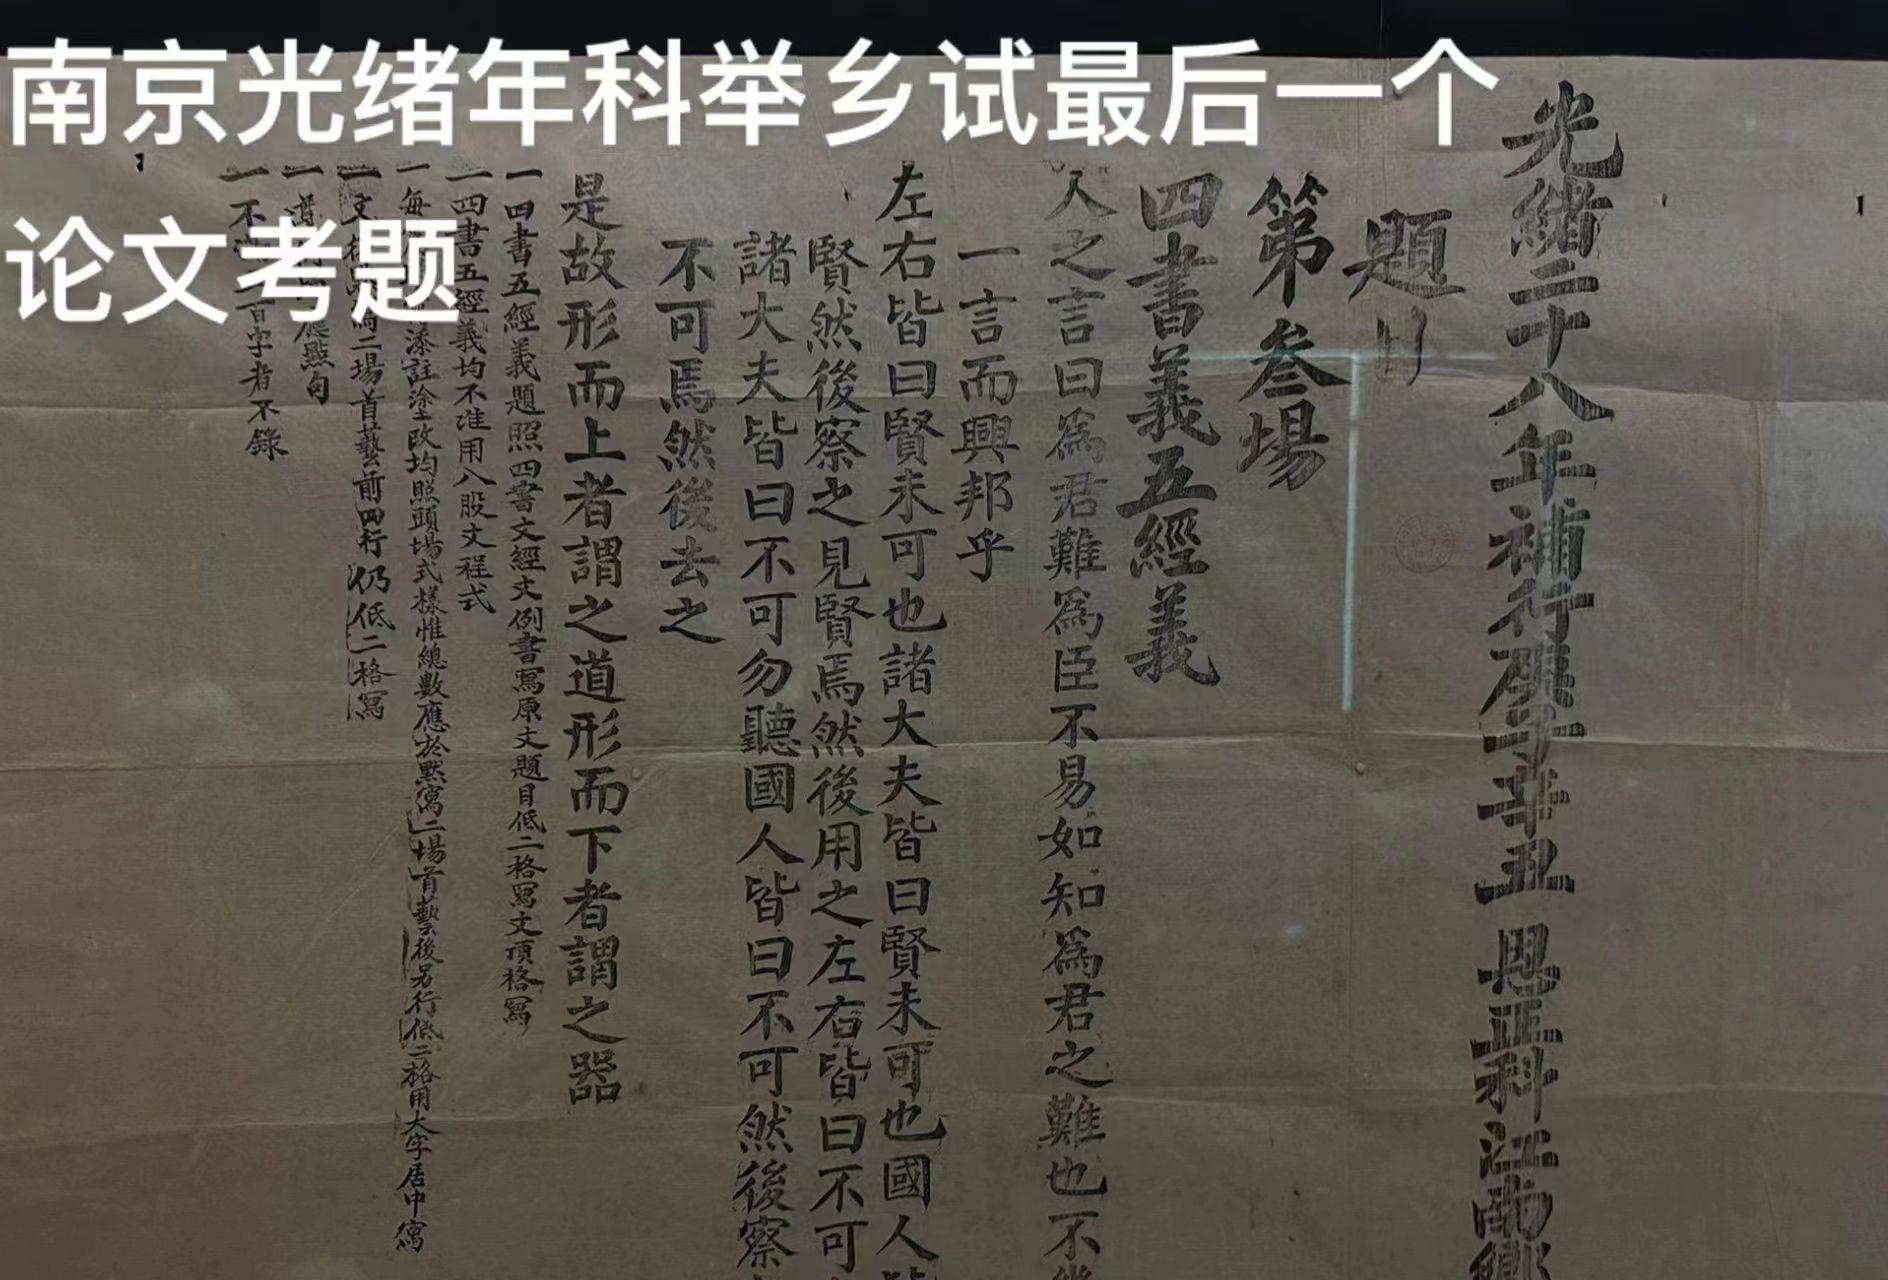 南京光绪年科举乡试最后一个
论文考题
光緒二十八年補行庚子辛丑 恩正科江南鄉
題目
第叁場
四書義五經義
人之言曰為君難為臣不易如知為君之難也不幾
一言而興邦乎
左右皆曰賢未可也諸大夫皆曰賢未可也國人皆
賢然後察之見賢焉然後用之左右皆曰不可
諸大夫皆曰不可勿聽國人皆曰不可然後察
不可焉然後去之
是故形而上者謂之道形而下者謂之器
一四書五經義題照四書文經文例書寫原文題目低二格寫文頂格寫
一四書五經義均不准用八股文程式
一每添註塗改均照頭場式樣惟總數應於默寫二場首藝後另行低二格用大字居中寫
一文後二場首藝前四行仍低二格寫
一應點句
一不百字者不錄